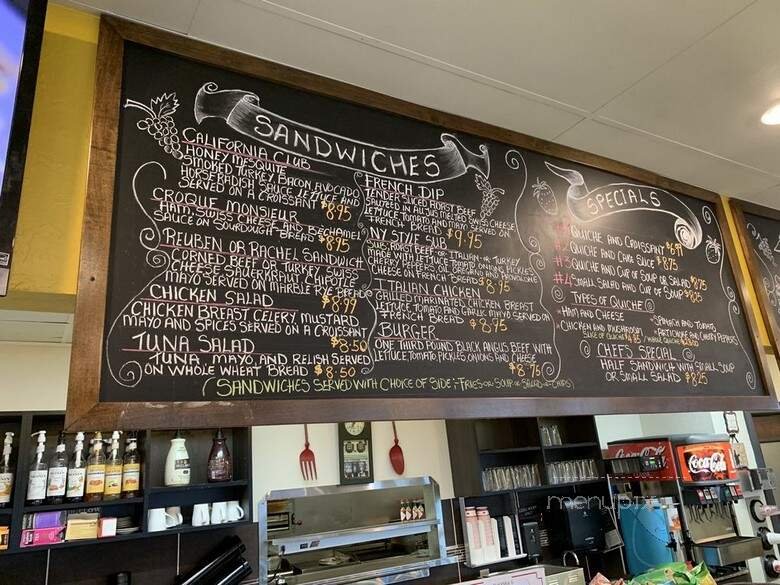 SANDWICHES
CALIFORNIA CLUB
HONEY MESQUITE
SMOKED TURKEY, BACON AVOCADO
HORSERADISH SAUCE LETTUCE AND
SERVED ON A CROISSANT $8.95
CROQUE MONSIEUR
HAM, SWISS CHEESE AND BECHAMEL
SAUCE ON SOURDOUGH BREAD $8.95
REUBEN OR RACHEL SANDWICH
CORNED BEEF OR TURKEY, SWISS
CHEESE SAUERKRAUT CHIPOTLE
MAYO SERVED ON MARBLE RYE BREAD
$8.99
CHICKEN SALAD
CHICKEN BREAST CELERY MUSTARD
MAYO AND SPICES SERVED ON A CROISSANT
$8.50
TUNA SALAD
TUNA, MAYO, AND RELISH SERVED
ON WHOLE WHEAT BREAD $8.50
FRENCH DIP
TENDER SLICED ROAST BEEF
SAUTEED IN AU JUS MELTED SWISS CHEESE
LETTUCE TOMATO AND MAYO SERVED ON
FRENCH BREAD $9.95
NY STYLE SUB
SUB: ROAST BEEF OR ITALIAN OR TURKEY
MADE WITH LETTUCE TOMATO ONIONS PICKLES
CHERRY PEPPERS OIL OREGANO AND PROVOLONE
CHEESE ON FRENCH BREAD $8.95
ITALIAN CHICKEN
GRILLED MARINATED CHICKEN BREAST
LETTUCE TOMATO AND GARLIC MAYO SERVED ON
FRENCH BREAD $8.95
BURGER
ONE THIRD POUND BLACK ANGUS BEEF WITH
LETTUCE TOMATO PICKLES ONIONS AND CHEESE
$8.75
SANDWICHES SERVED WITH CHOICE OF SIDE:-FRIES OR SOUP OR SALAD OR CHIPS
SPECIALS
QUICHE AND CROISSANT $6.99
QUICHE AND CAKE SLICE $8.75
#3 QUICHE AND CUP OF SOUP OR SALAD $8.75
#4 SMALL SALAD AND CUP OF SOUP $8.25
TYPES OF QUICHE
HAM AND CHEESE
SPINACH AND TOMATO
CHICKEN AND MUSHROOM
ARTICHOKE AND CHERRY PEPPERS
SLICE OF QUICHE / WHOLE QUICHE
CHEFS SPECIAL
HALF SANDWICH WITH SMALL SOUP
OR SMALL SALAD $8.25
Coca-Cola
Coca-Cola
menupix